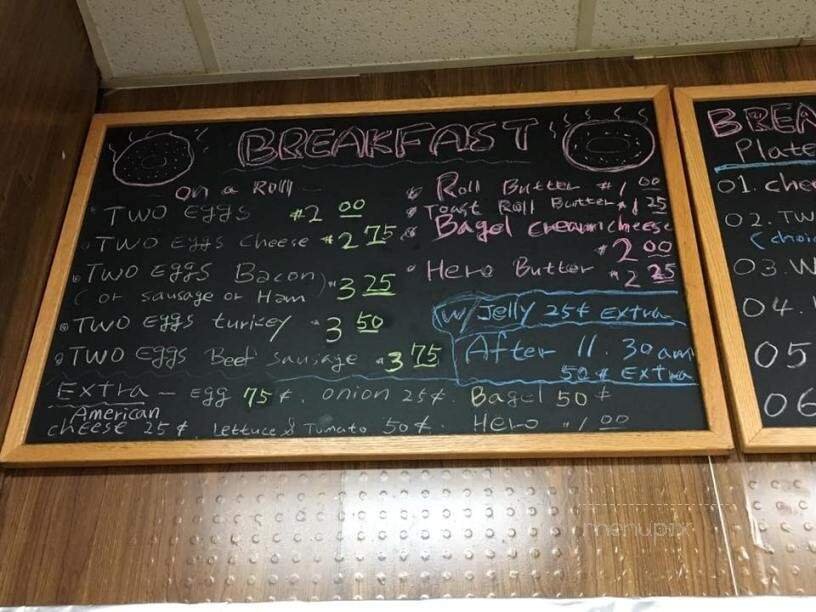 BREAKFAST
on a Roll
TWO Eggs $2 00
TWO Eggs Cheese $2 75
TWO EGGS Bacon
(or sausage or Ham) $3 25
TWO Eggs turkey $3 50
TWO Eggs Beef sausage $3 75
Roll Butter $1 00
Toast Roll Butter $1 25
Bagel creamcheese
$2 00
Hero Butter $2 25
w/ Jelly 25¢ Extra
After 11.30am
50¢ Extra
Extra - Egg 75¢. onion 25¢. Bagel 50¢
American
cheese 25¢. Lettuce & Tomato 50¢. Hero $1 00
BREA
Plate
01. che
02. TW
(choi
03. W
04.
05
06
menupix